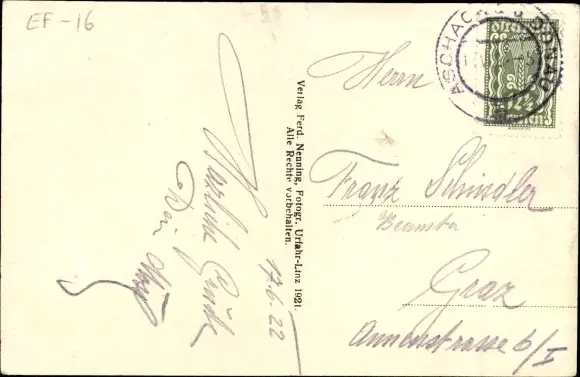 EF-16
ASCHACH a.d. DONAU
Herrn
Franz Schindler
Beamter
Graz
Annenstrasse 6/I
Verlag Ferd. Neuning, Fotogr., Urfahr-Linz 1921.
Alle Rechte vorbehalten.
17.6.22
Herzliche Grüße
Dein